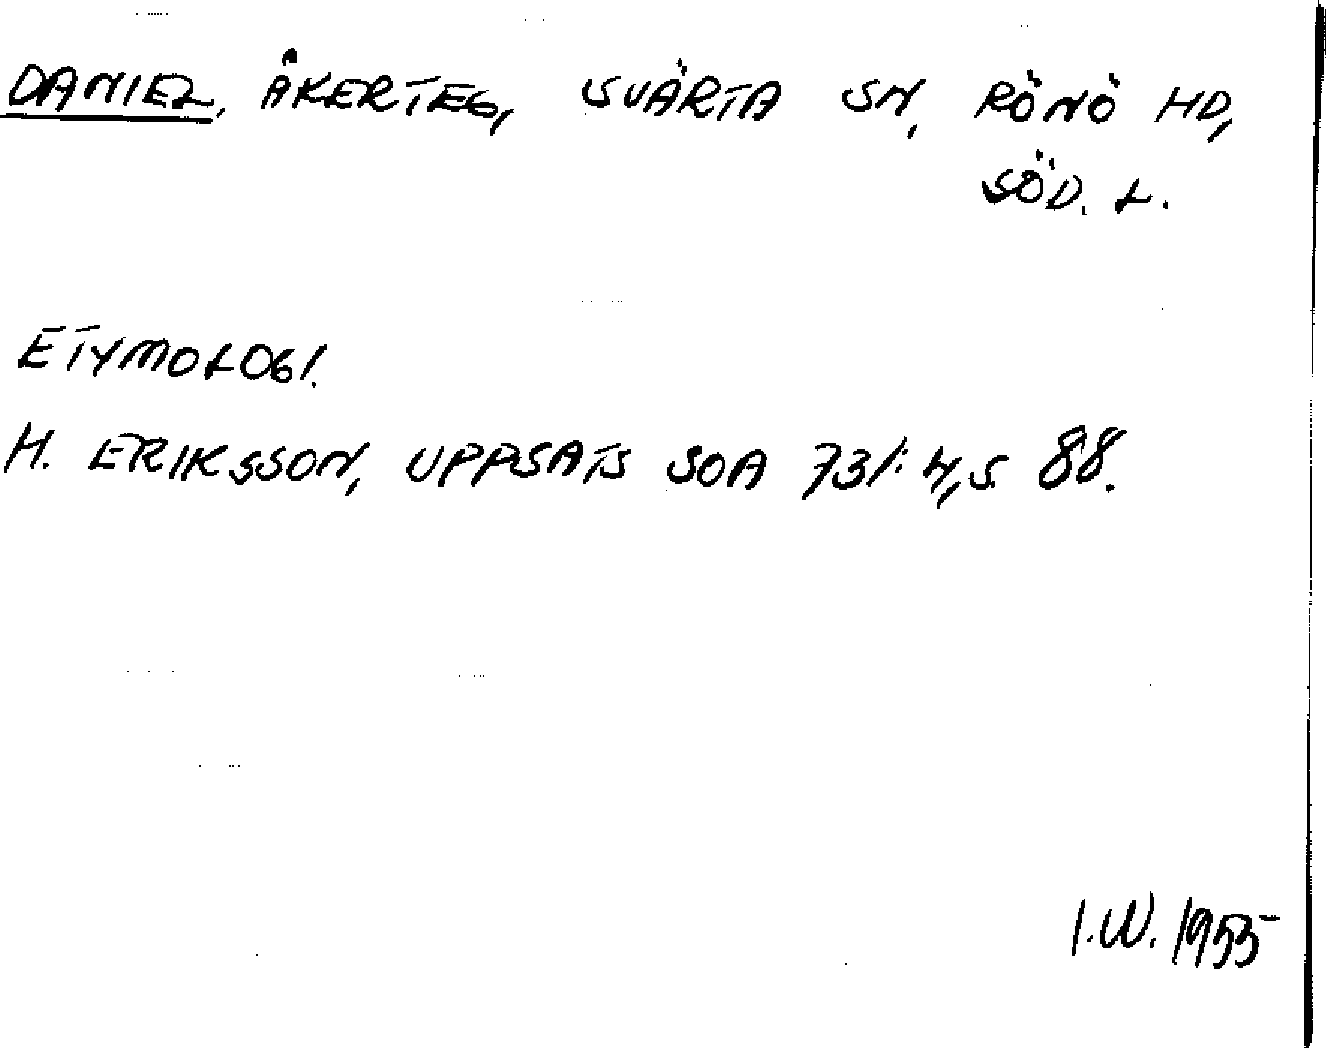 DANIEL, ÅKERTEG, SVÄRTA SN, RÖNÖ HD,
SÖD. L.
ETYMOLOGI.
H. ERIKSSON, UPPSATS SOA 73/: 4, S 88.
I.W. 1955